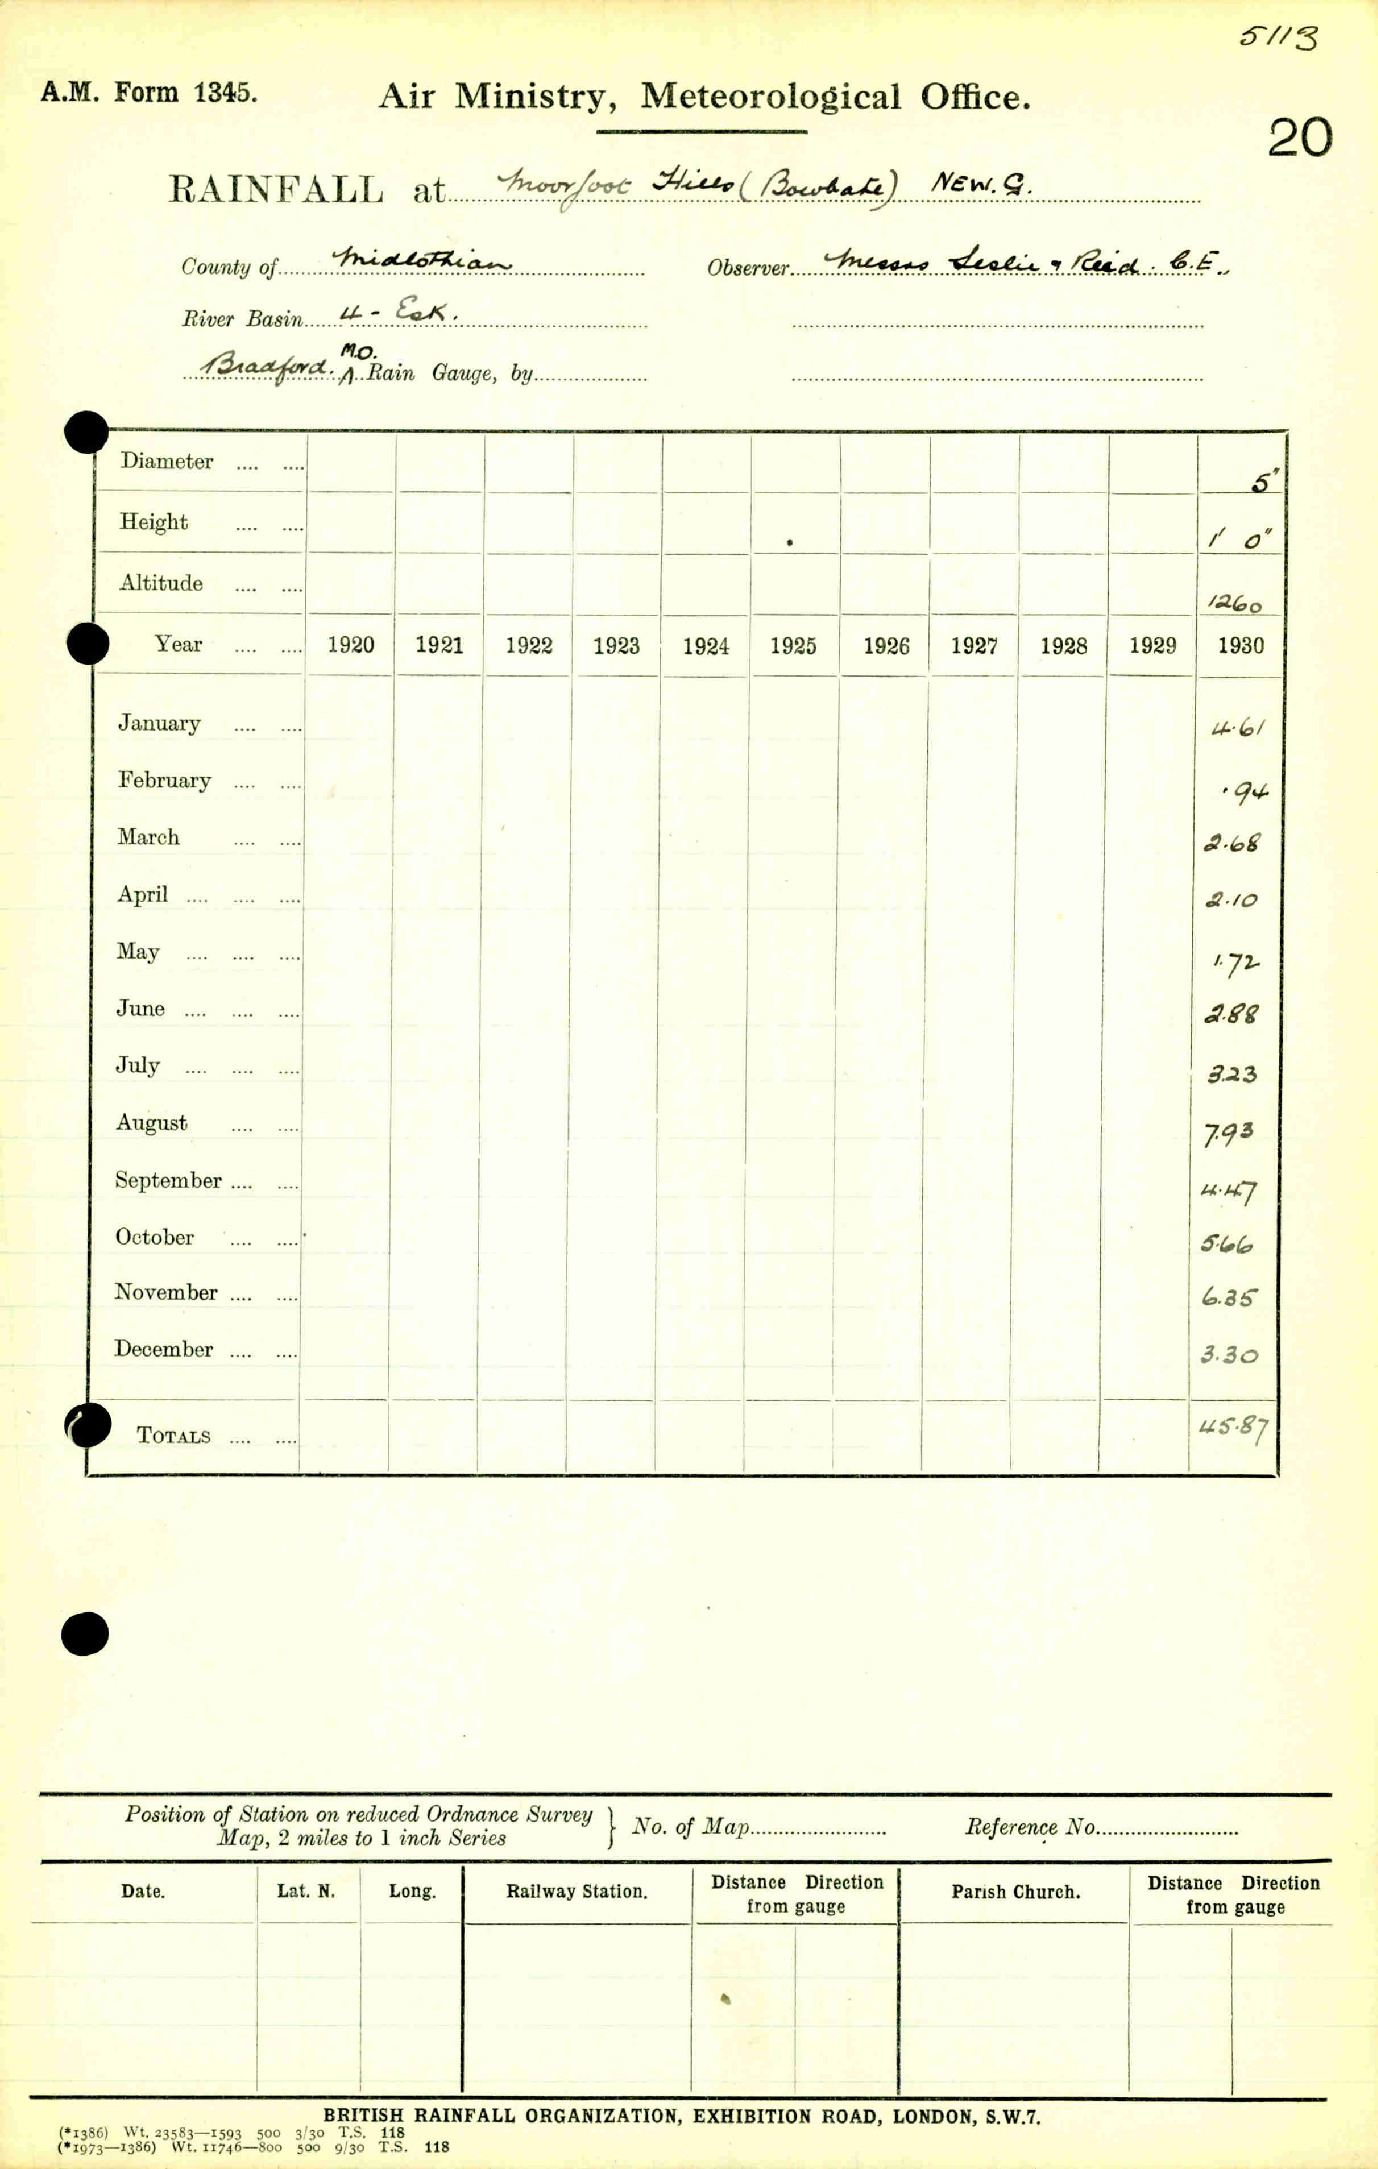 5113
A.M. Form 1345. Air Ministry, Meteorological Office.
20
RAINFALL at Moorfoot Hills (Bowbate) NEW. G.
County of Midlothian Observer Messrs Leslie & Reid. C.E.,
River Basin 4 - Esk.
M.O.
Bradford. Rain Gauge, by
Diameter .... .... 5"
Height .... .... 1' 0"
Altitude .... .... 1260
Year .... .... 1920 1921 1922 1923 1924 1925 1926 1927 1928 1929 1930
January .... .... 4.61
February .... .... .94
March .... .... 2.68
April .... .... .... 2.10
May .... .... .... 1.72
June .... .... .... 2.88
July .... .... .... 3.23
August .... .... 7.93
September .... .... 4.47
October .... .... 5.66
November .... .... 6.35
December .... .... 3.30
TOTALS .... .... 45.87
Position of Station on reduced Ordnance Survey
Map, 2 miles to 1 inch Series } No. of Map Reference No.
Date. Lat. N. Long. Railway Station. Distance Direction from gauge Parish Church. Distance Direction from gauge
BRITISH RAINFALL ORGANIZATION, EXHIBITION ROAD, LONDON, S.W.7.
(*1386) Wt. 23583—1593 500 3/30 T.S. 118
(*1973—1386) Wt. 11746—800 500 9/30 T.S. 118